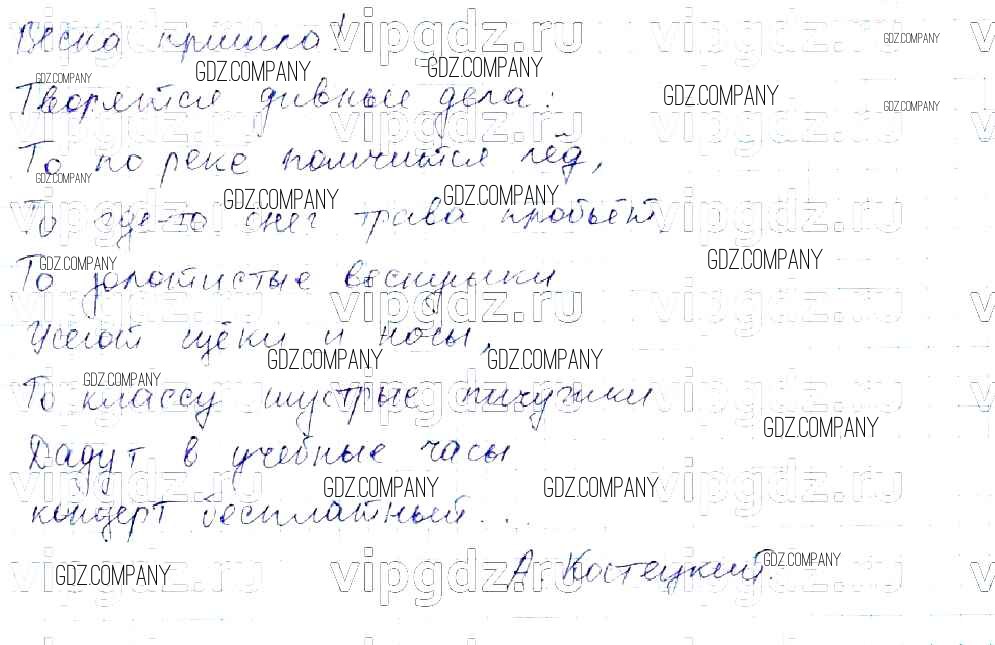 Весна пришла!
Творятся дивные дела:
То по реке помчится лёд,
То где-то снег трава пробьёт,
То золотистые веснушки
Усеют щёки и носы,
То классу шустрые пичужки
Дадут в учебные часы
концерт бесплатный...
А. Костецкий.